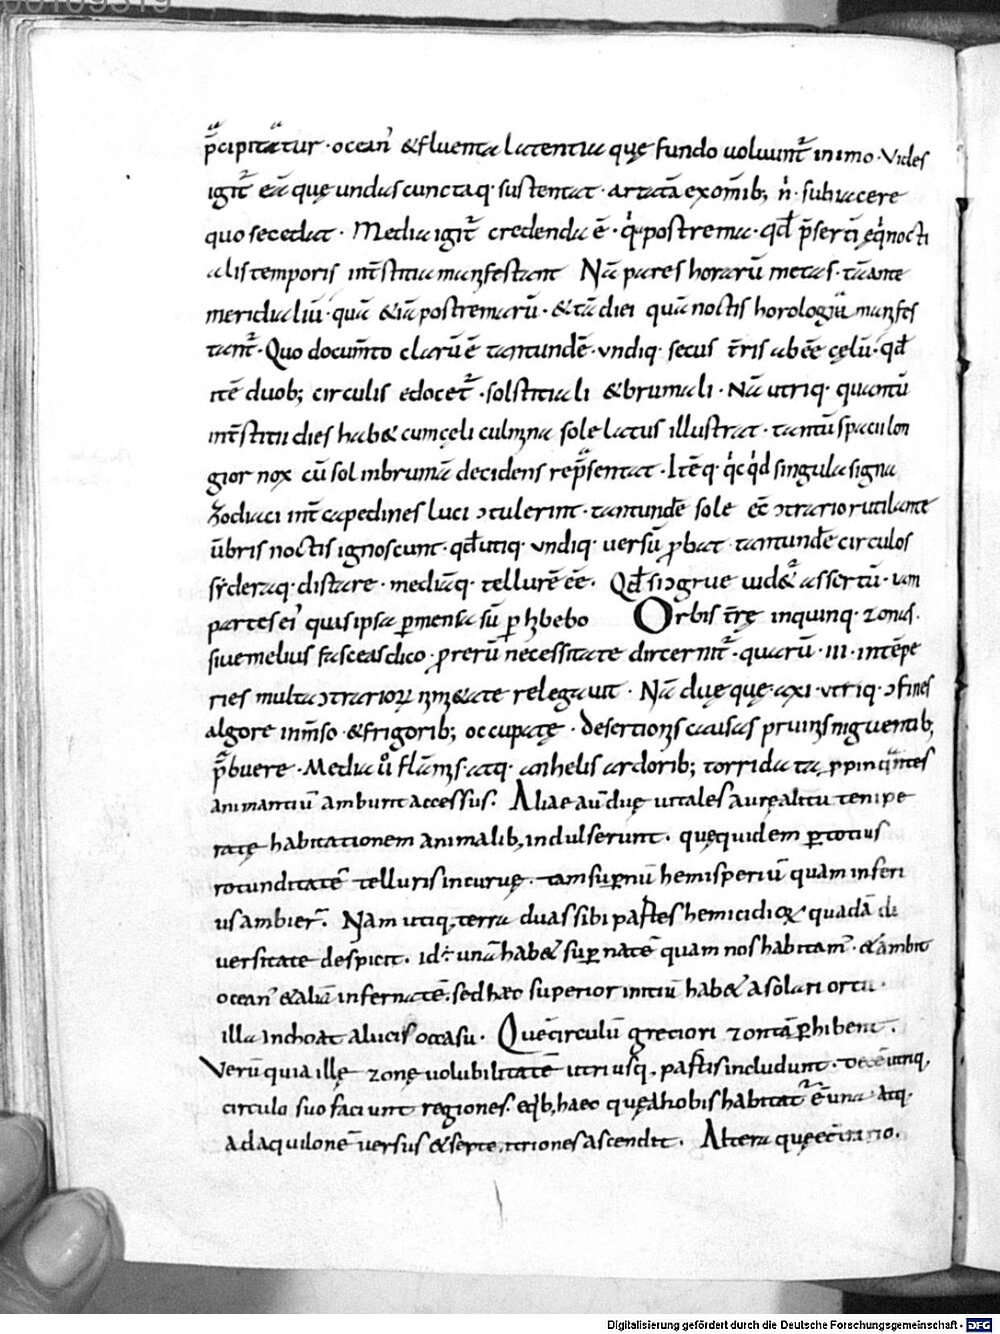 p̄cipitatur · ocean᾽ & fluenta latentia quę fundo uoluunt᷑ in imo · Vides
igit᷑ eā quę undas cunctaq· sustentat · artatā ex om̄ib; n̊ · subiacere
quo secedat · Media igit᷑ credenda ē · q̇ postrema · qd̄ p̄serti eq̇nocti
alis temporis int̄stitia manifestant Nā pares horarū metas · tā ante
meridialiū · quā & iā postremarū · & tā diei quā noctis horologia manifes
tant᷑ · Quo documto clarū ē tantundē · vndiq· secus t̄ris abēē cęlū · qd̄
itē duob; circulis edocet᷑ · solstitiali & brumali · Nā utriq· quantū
int̄stitii dies hab& cum cęli culmina sole latus illustrat · tantū spacii lon
gior nox cū sol in brumā decidens rep̄sentat · Itēq· q̇cq̇d singula signa
zodiaci int̄capedines luci ɔtulerint · tantundē sole eē ɔtrario rutilante
ūbris noctis ignoscunt · qd̄ utiq· vndiq· uersū ꝓbat tantundē circulos
sẏderaq· distare · mediāq· tellurē eē. Qd̄ si ɔgrue uidet᷑ assertū · iam
partes ei᾽ quis ipsa ꝑmensa sū ꝑhibebo Orbis t̄rę in quinq· zonas ·
siue melius fasceas dico · ꝓ rerū necessitate discernit᷑ · quarū · III · intēpe
ries multa ɔtrarioꝝ nimi&ate relegauit · Nā duę quę · axi · vtriq· ɔfines
algore inm̄so · & frigorib; occupatę · desertionis causas pruinis niguentib;
p̄buere · Media ů flāmis · atq· anhelis ardorib; torrida ta ꝓpinq̇ntes
animantiū amburit accessus. Aliae au duę uitales aurę alitu tempe
ratę habitationem animalib; indulserunt. quęquidem ꝑ totius
rotunditatē telluris incuruę · tam suꝑnū hemisperiū quam inferi
us ambier̄. Nam utiq, terra duas sibi partes hemicidioꝝ quadā di
uersitate despicit. id÷ unā hab& suꝑnatē quam nos habitam᾽ · & ambit
ocean᾽ & aliā infernatē. sed haec superior initiū hab& a solari ortu ·
illa inchoat a lucis occasu · Quē circulū greci ori zonta ꝑhibent.
Verū quia illę zonę uolubilitatē utriusq, partis includunt · decē utriq,
circulo suo faciunt regiones. eqb, haec quę a nobis habitat᷑ ē una · atq·
ad aquilonē uersus & septentriones ascendit. Altera quę ēɔtrario.
Digitalisierung gefördert durch die Deutsche Forschungsgemeinschaft - DFG